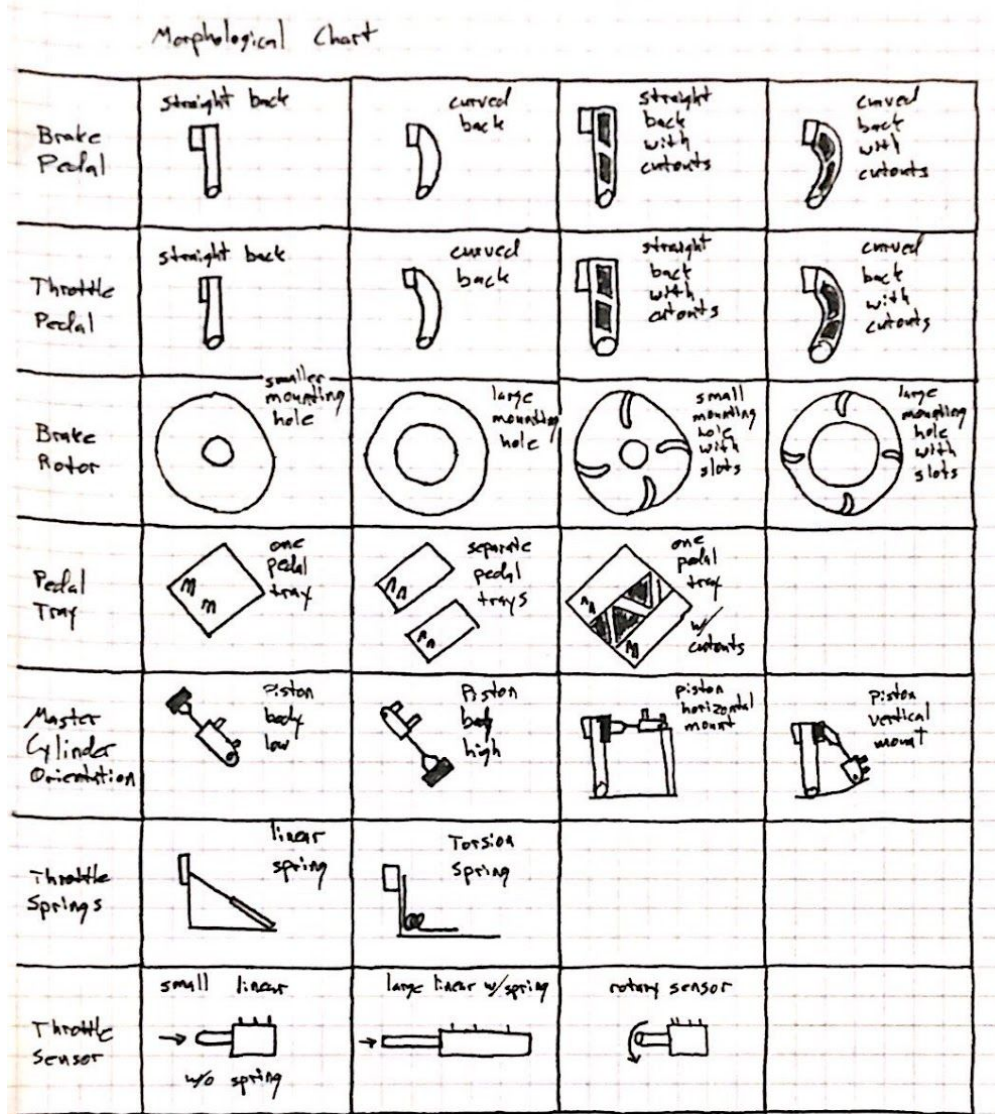 Morphological Chart
Brake
Pedal
straight back
curved
back
straight
back
with
cutouts
curved
back
with
cutouts
Throttle
Pedal
straight back
curved
back
straight
back
with
cutouts
curved
back
with
cutouts
Brake
Rotor
smaller
mounting
hole
large
mounting
hole
small
mounting
hole
with
slots
large
mounting
hole
with
slots
Pedal
Tray
one
pedal
tray
separate
pedal
trays
one
pedal
tray
w/
cutouts
Master
Cylinder
Orientation
Piston
body
low
Piston
body
high
piston
horizontal
mount
piston
vertical
mount
Throttle
Springs
linear
spring
Torsion
Spring
Throttle
Sensor
small linear
w/o spring
large linear w/spring
rotary sensor